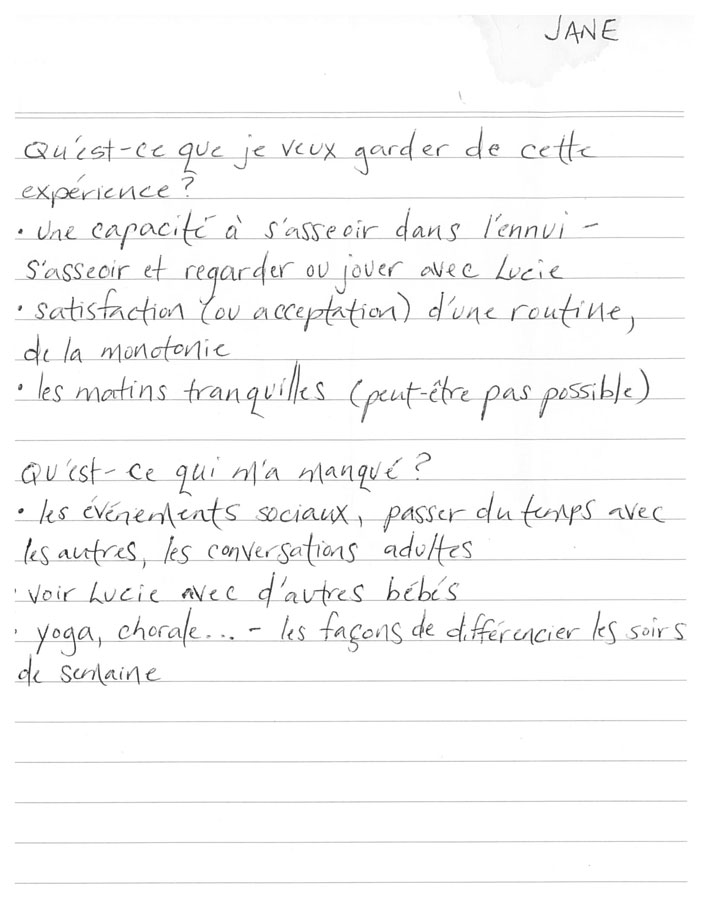 JANE
Qu'est-ce que je veux garder de cette
expérience?
• Une capacité à s'asseoir dans l'ennui -
s'asseoir et regarder ou jouer avec Lucie
• satisfaction (ou acceptation) d'une routine,
de la monotonie
• les matins tranquilles (peut-être pas possible)
Qu'est-ce qui m'a manqué?
• les événements sociaux, passer du temps avec
les autres, les conversations adultes
• voir Lucie avec d'autres bébés
• yoga, chorale... - les façons de différencier les soirs
de semaine